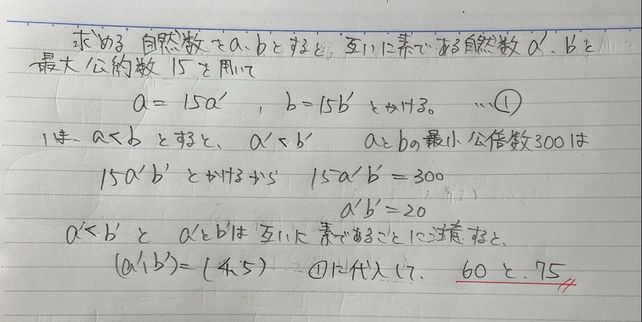 求める自然数をa、bとすると、互いに素である自然数a′、b′と
最大公約数15を用いて
a = 15a′ , b = 15b′ とかける。 …①
a<bとすると、a′<b′ aとbの最小公倍数300は
15a′b′ とかけるから 15a′b′ = 300
a′b′ = 20
a′<b′ と a′とb′は互いに素であることに注意すると、
(a′,b′) = (4,5) ①に代入して、 60と、75